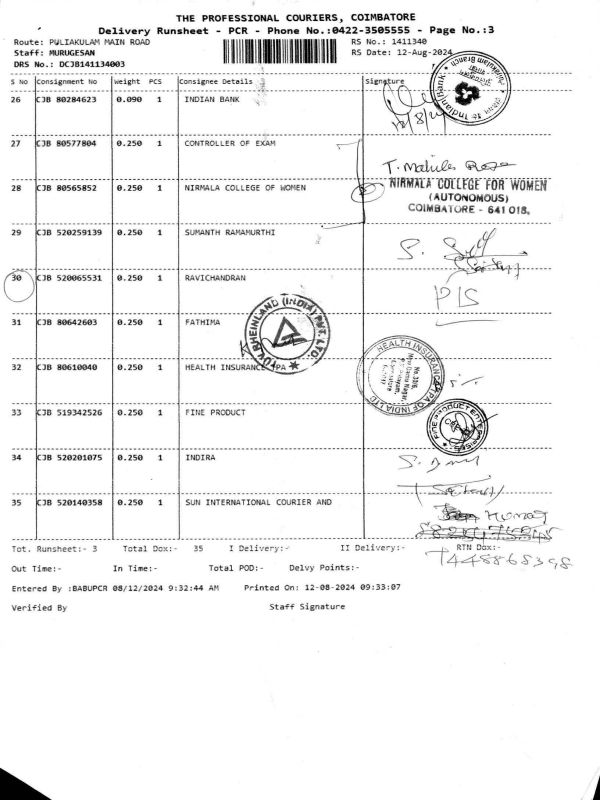 THE PROFESSIONAL COURIERS, COIMBATORE
Delivery Runsheet - PCR - Phone No.:0422-3505555 - Page No.:3
Route: PULIAKULAM MAIN ROAD RS No.: 1411340
Staff: MURUGESAN RS Date: 12-Aug-2024
DRS No.: DCJB141134003
S No Consignment No Weight PCS Consignee Details Signature
26 CJB 80284623 0.090 1 INDIAN BANK
27 CJB 80577804 0.250 1 CONTROLLER OF EXAM
28 CJB 80565852 0.250 1 NIRMALA COLLEGE OF WOMEN
NIRMALA COLLEGE FOR WOMEN
(AUTONOMOUS)
COIMBATORE - 641 018.
29 CJB 520259139 0.250 1 SUMANTH RAMAMURTHI
30 CJB 520065531 0.250 1 RAVICHANDRAN
31 CJB 80642603 0.250 1 FATHIMA
32 CJB 80610040 0.250 1 HEALTH INSURANCE TPA
HEALTH INSURANCE TPA OF INDIA LTD
33 CJB 519342526 0.250 1 FINE PRODUCT
34 CJB 520201075 0.250 1 INDIRA
35 CJB 520140358 0.250 1 SUN INTERNATIONAL COURIER AND
Kumar
Tot. Runsheet:- 3 Total Dox:- 35 I Delivery:- II Delivery:- RTN Dox:-
7448868398
Out Time:- In Time:- Total POD:- Delvy Points:-
Entered By :BABUPCR 08/12/2024 9:32:44 AM Printed On: 12-08-2024 09:33:07
Verified By Staff Signature